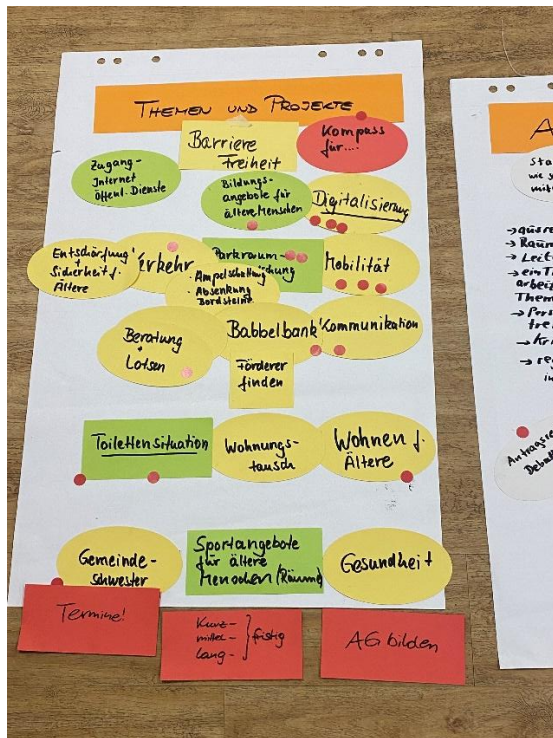 THEMEN UND PROJEKTE
Barriere
Freiheit
Kompass
für....
Zugang-
Internet
Öffentl. Dienste
Bildungs-
angebote für
ältere Menschen
Digitalisierung
Entschärfung
+
Sicherheit f.
Ältere
Verkehr
Parkraum-
Ampelschaltung
Absenkung
Bordsteine
Mobilität
Beratung
+
Lotsen
Babbelbank
Kommunikation
Förderer
finden
Toilettensituation
Wohnungs-
tausch
Wohnen f.
Ältere
Gemeinde-
schwester
Sportangebote
für ältere
Menschen (Räume)
Gesundheit
Termine!
Kurz-
mittel-
lang-
fristig
AG bilden
A
mit
→ Raum
Them
Debatt